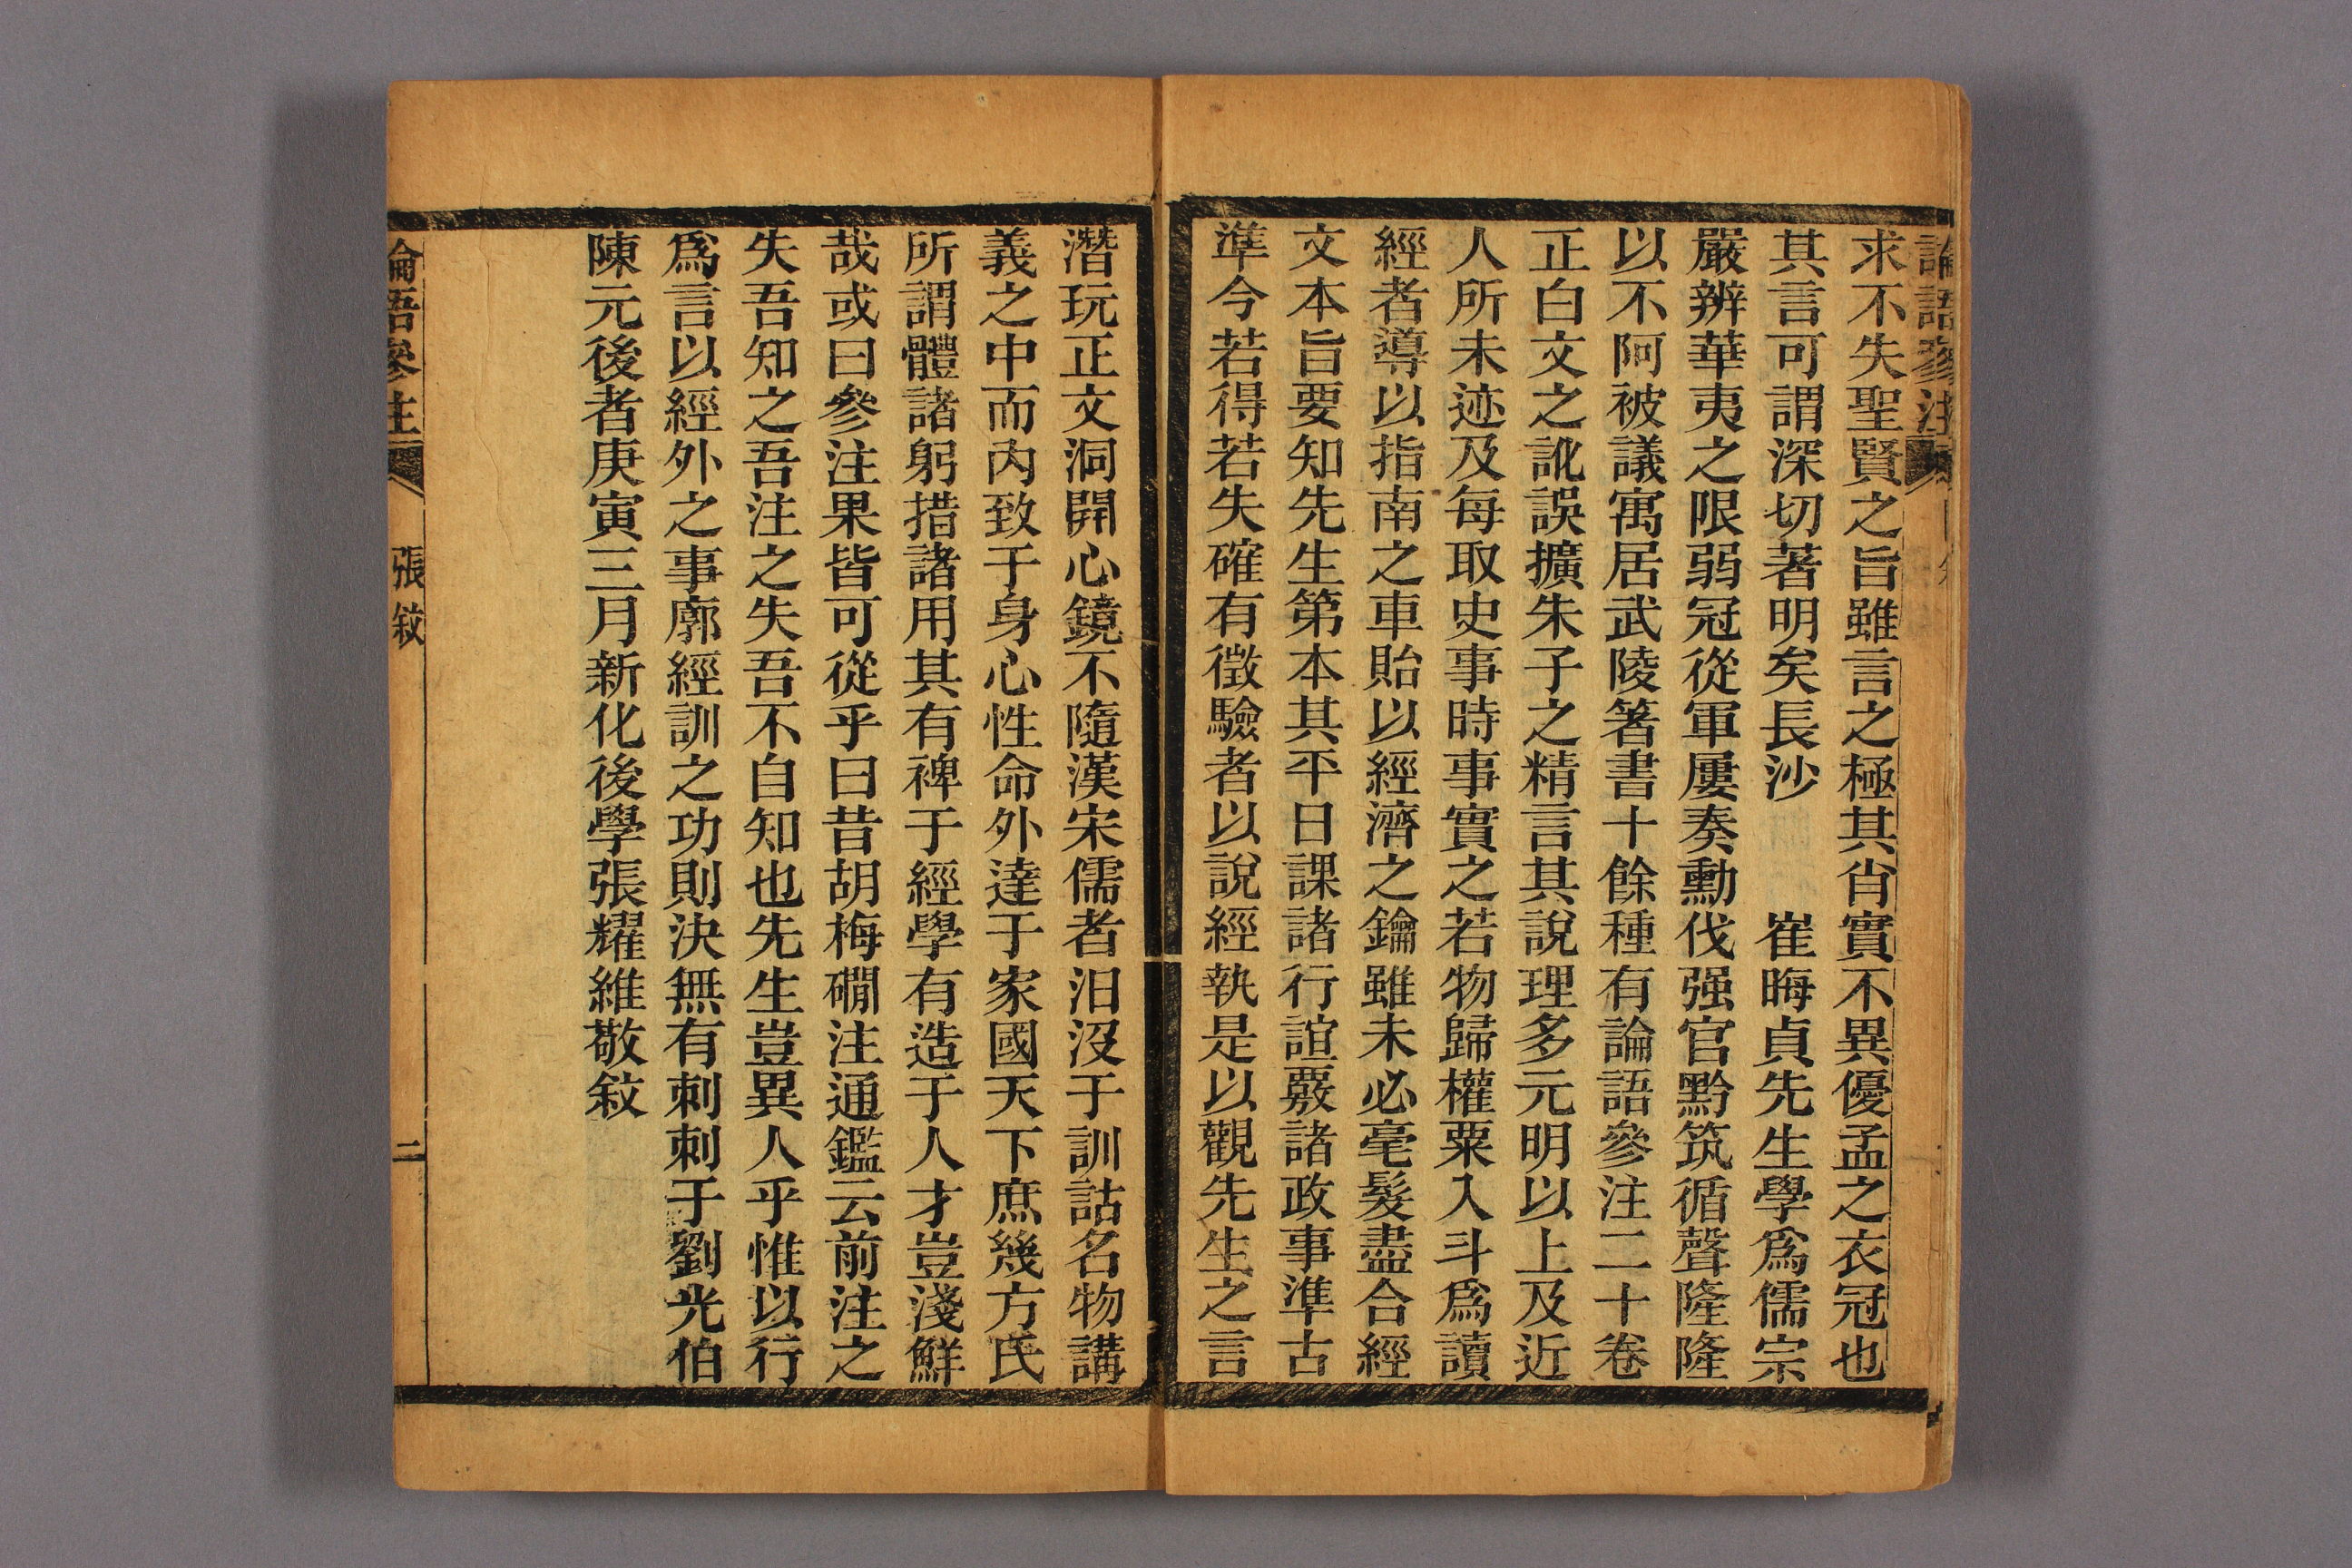 論語參注
求不失聖賢之旨雖言之極其肖實不異優孟之衣冠也
其言可謂深切著明矣長沙　崔晦貞先生學爲儒宗
嚴辨華夷之限弱冠從軍屢奏勳伐强官黔筑循聲隆隆
以不阿被議寓居武陵箸書十餘種有論語參注二十卷
正白文之訛誤擴朱子之精言其說理多元明以上及近
人所未迹及每取史事時事實之若物歸權粟入斗爲讀
經者導以指南之車貽以經濟之鑰雖未必毫髮盡合經
文本旨要知先生第本其平日課諸行誼覈諸政事準古
準今若得若失確有徵驗者以說經執是以觀先生之言
潛玩正文洞開心鏡不隨漢宋儒者汨沒于訓詁名物講
義之中而內致于身心性命外達于家國天下庶幾方氏
所謂體諸躬措諸用其有裨于經學有造于人才豈淺鮮
哉或曰參注果皆可從乎曰昔胡梅磵注通鑑云前注之
失吾知之吾注之失吾不自知也先生豈異人乎惟以行
爲言以經外之事廓經訓之功則決無有刺刺于劉光伯
陳元後者庚寅三月新化後學張耀維敬敘
論語參注
張敘
二